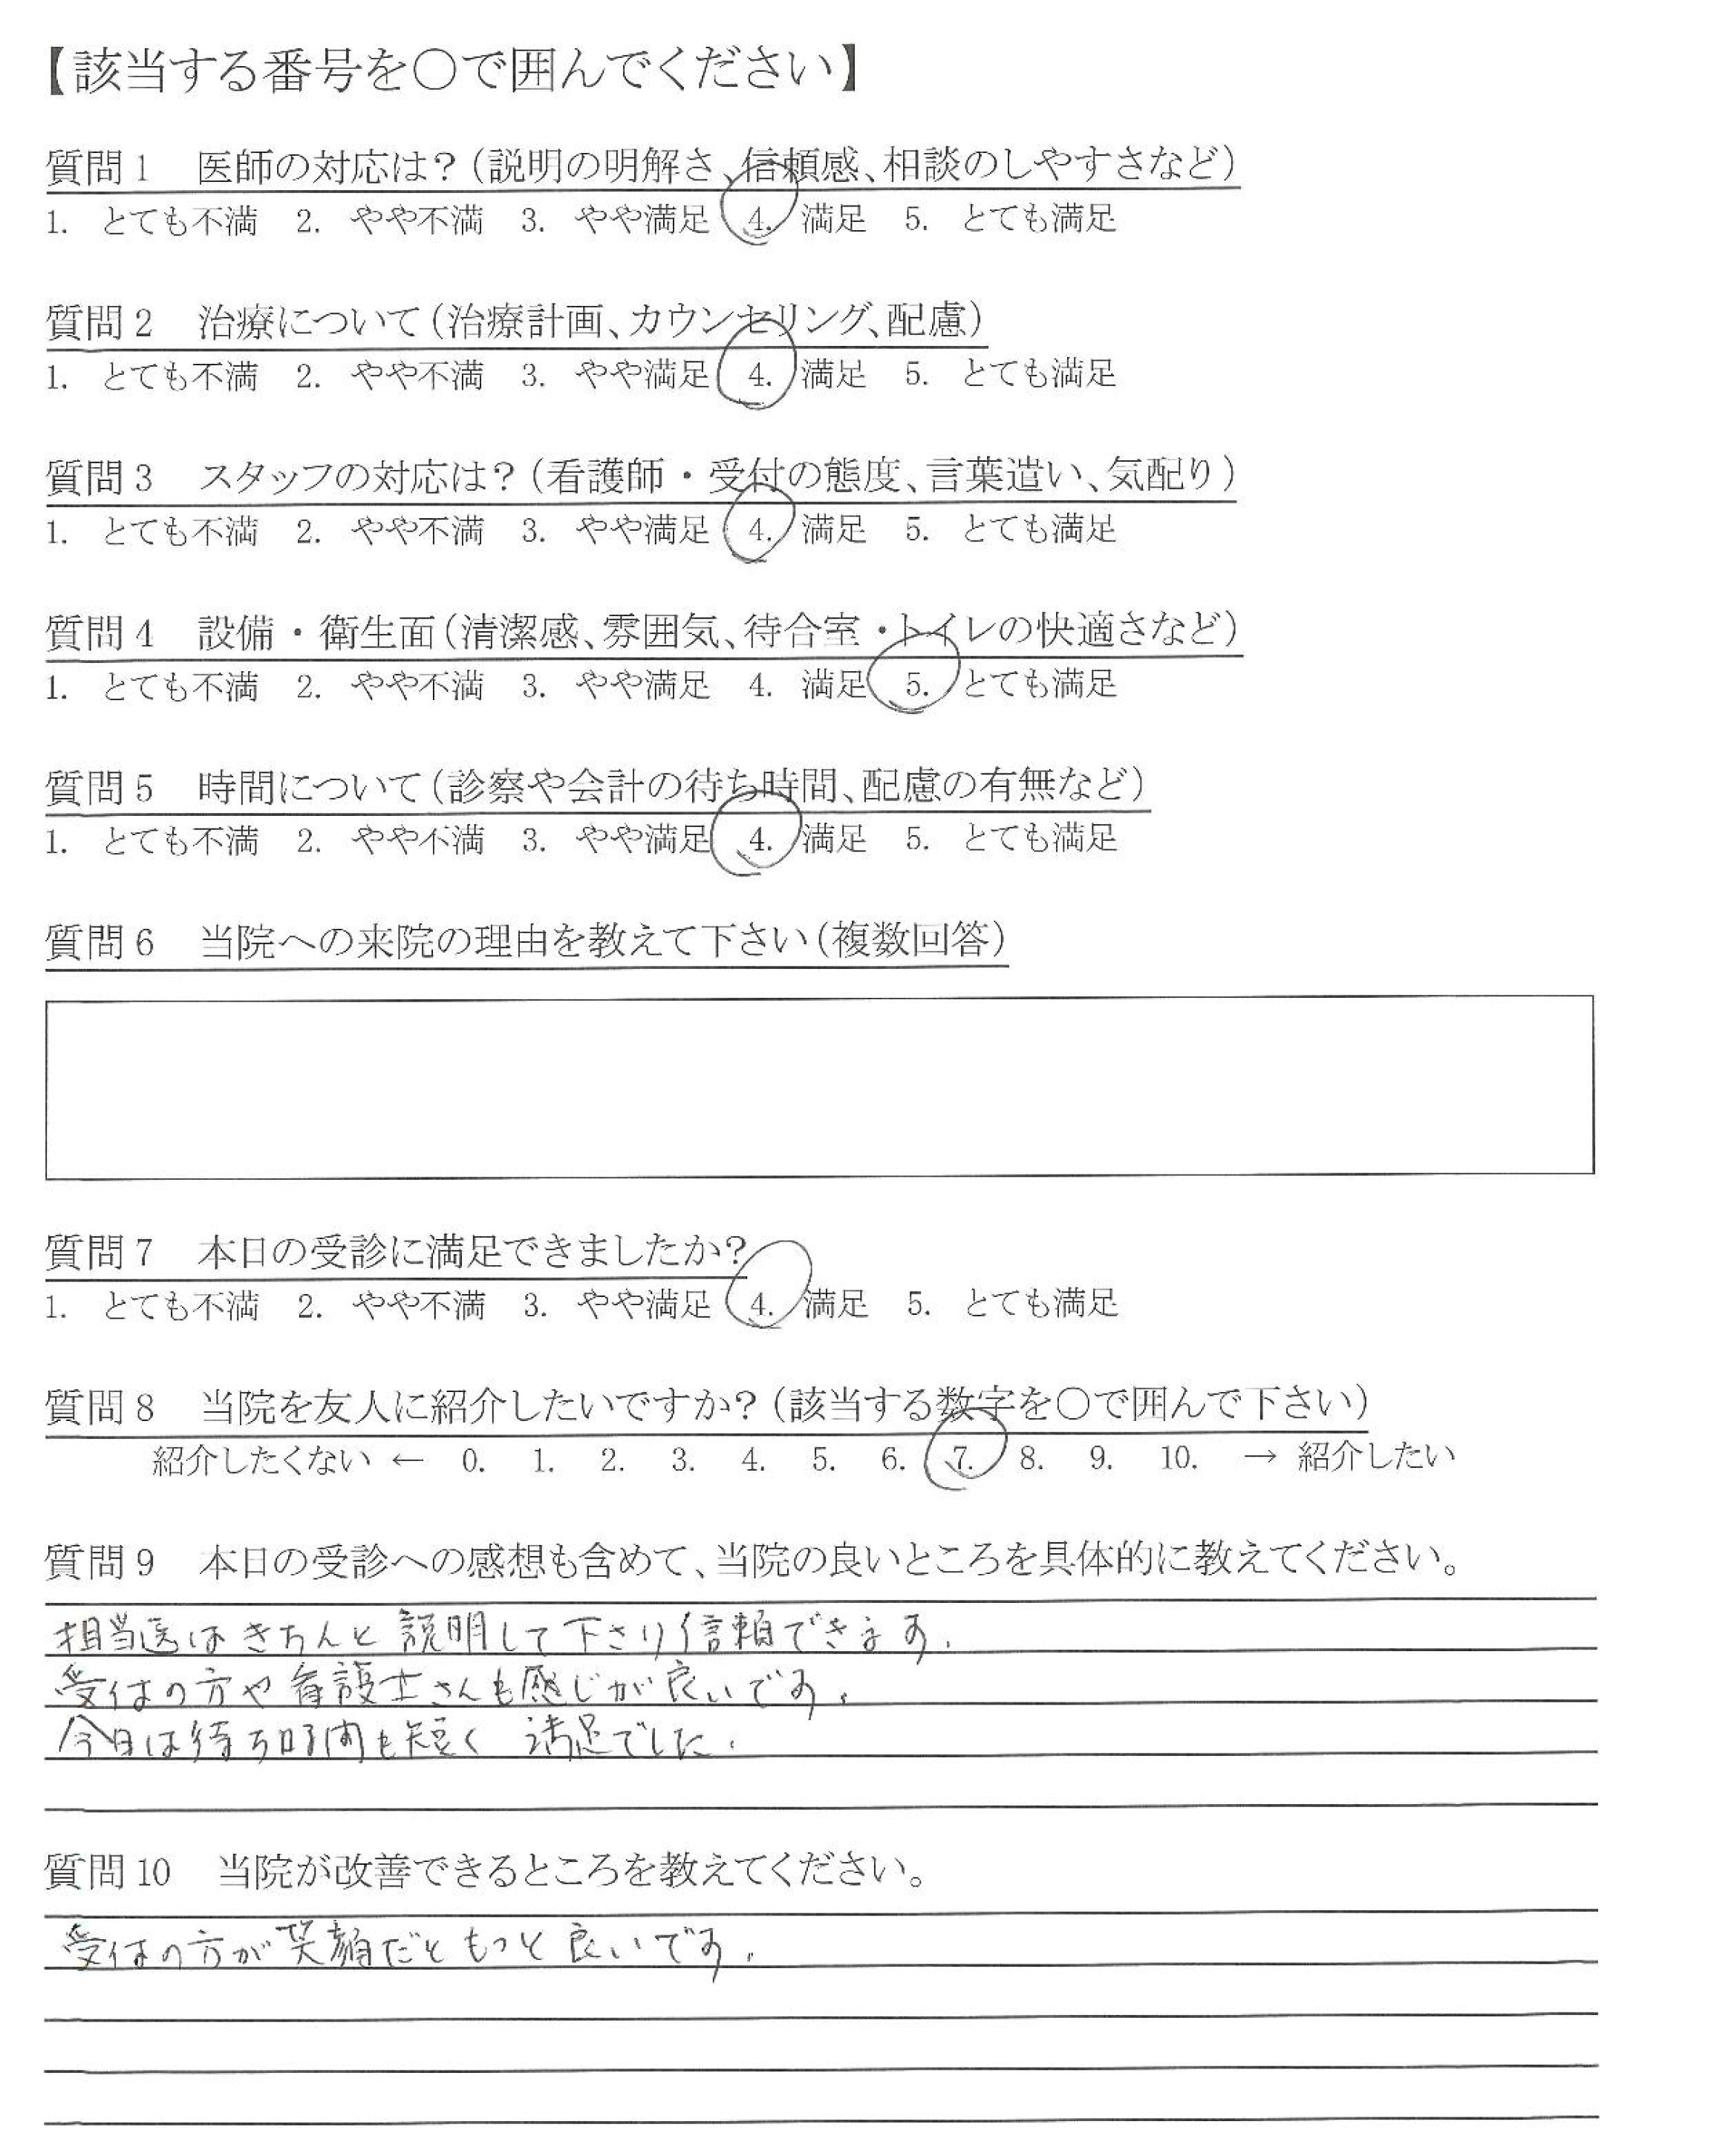 【該当する番号を〇で囲んでください】
質問1　医師の対応は？（説明の明解さ、信頼感、相談のしやすさなど）
1.　とても不満　2.　やや不満　3.　やや満足　4.　満足　5.　とても満足
質問2　治療について（治療計画、カウンセリング、配慮）
1.　とても不満　2.　やや不満　3.　やや満足　4.　満足　5.　とても満足
質問3　スタッフの対応は？（看護師・受付の態度、言葉遣い、気配り）
1.　とても不満　2.　やや不満　3.　やや満足　4.　満足　5.　とても満足
質問4　設備・衛生面（清潔感、雰囲気、待合室・トイレの快適さなど）
1.　とても不満　2.　やや不満　3.　やや満足　4.　満足　5.　とても満足
質問5　時間について（診察や会計の待ち時間、配慮の有無など）
1.　とても不満　2.　やや不満　3.　やや満足　4.　満足　5.　とても満足
質問6　当院への来院の理由を教えて下さい（複数回答）
質問7　本日の受診に満足できましたか？
1.　とても不満　2.　やや不満　3.　やや満足　4.　満足　5.　とても満足
質問8　当院を友人に紹介したいですか？（該当する数字を〇で囲んで下さい）
紹介したくない ← 0.　1.　2.　3.　4.　5.　6.　7.　8.　9.　10.　→ 紹介したい
質問9　本日の受診への感想も含めて、当院の良いところを具体的に教えてください。
担当医はきちんと説明して下さり信頼できます。
受付の方や看護士さんも感じが良いです。
今日は待ち時間も短く　満足でした。
質問10　当院が改善できるところを教えてください。
受付の方が笑顔だともっと良いです。